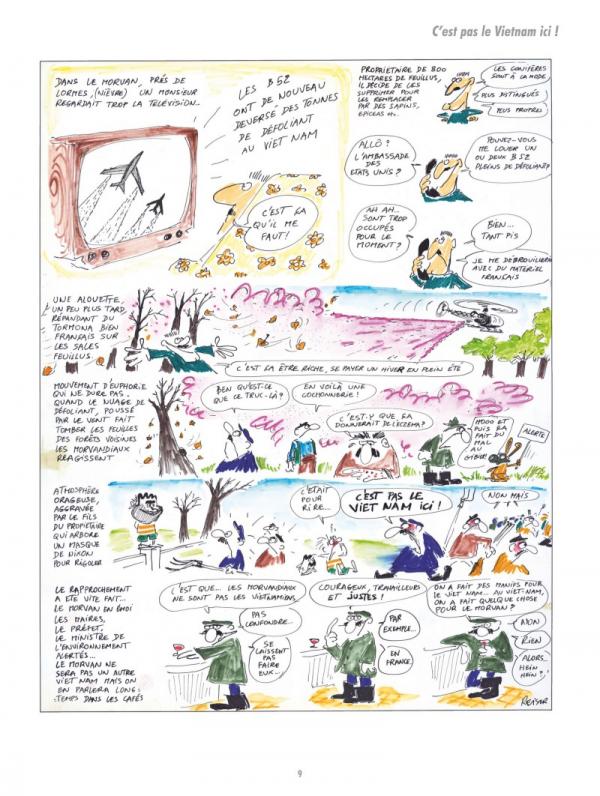 C'est pas le Vietnam ici !
DANS LE MORVAN, PRÉS DE
LORMES, (NIÈVRE) UN MONSIEUR
REGARDAIT TROP LA TELÉVISION..
LES B52
ONT DE NOUVEAU
DEVERSÉ DES TONNES
DE DÉFOLIANT
AU VIET NAM
C'EST ÇA
QU'IL ME
FAUT!
PROPRIETAIRE DE 800
HECTARES DE FEUILLUS,
IL DÉCIDE DE LES
SUPPRIMER POUR
LES REMPLACER
PAR DES SAPINS,
EPICEAS etc..
LES CONIFÈRES
SONT À LA MODE
PLUS DISTINGUÉS
PLUS PROPRES
ALLÔ ?
L'AMBASSADE
DES
ETATS UNIS ?
POUVEZ-VOUS
ME LOUER UN
OU DEUX B52
PLEINS DE DÉFOLIANT?
AH AH...
SONT TROP
OCCUPÉS
POUR LE
MOMENT?
BIEN...
TANT PIS
JE ME DÉBROUILLERAI
AVEC DU MATERIEL
FRANÇAIS
UNE ALOUETTE,
UN PEU PLUS TARD,
RÉPANDANT DU
TORMONA BIEN
FRANÇAIS SUR
LES SALES
FEUILLUS.
C'EST ÇA ÊTRE RICHE, SE PAYER UN HIVER EN PLEIN ÉTÉ
MOUVEMENT D'EUPHORIE
QUI NE DURE PAS.
QUAND LE NUAGE DE
DÉFOLIANT, POUSSÉ
PAR LE VENT FAIT
TOMBER LES FEUILLES
DES FORÊTS VOISINES
LES MORVANDIAUX
RÉAGISSENT
BEN QU'EST-CE
QUE CE TRUC-LÀ?
EN VOILÀ UNE
COCHONNERIE!
C'EST-Y QUE ÇA
DONNERAIT DE L'ECZEMA?
ET
PUIS ÇA
FAIT DU
MAL
AU
GIBIER
ALERTE
ATMOSPHÈRE
ORAGEUSE,
AGGRAVÉE
PAR LE FILS
DU PROPIÉTAIRE
QUI ARBORE
UN MASQUE
DE NIXON
POUR RIGOLER
C'ÉTAIT
POUR
RIRE...
C'EST PAS LE
VIET NAM ICI !
NON MAIS
LE RAPPROCHEMENT
A ETE VITE FAIT...
LE MORVAN EN EMOI
LES MAIRES,
LE PRÉFET,
LE MINISTRE DE
L'ENVIRONNEMENT
ALERTÉS...
LE MORVAN NE
SERA PAS UN AUTRE
VIET NAM MAIS ON
EN PARLERA LONG-
TEMPS DANS LES CAFÉS
C'EST QUE... LES MORVANDIAUX
NE SONT PAS LES VIETNAMIENS,
PAS
CONFONDRE..
SE
LAISSENT
PAS
FAIRE
EUX...
COURAGEUX, TRAVAILLEURS
ET JUSTES !
PAR
EXEMPLE...
EN
FRANCE,
ON A FAIT DES MANIFS POUR
LE VIET NAM... AU VIET-NAM,
ON A FAIT QUELQUE CHOSE
POUR LE MORVAN?
NON
RIEN
ALORS..
HEIN
HEIN?
REISER
9